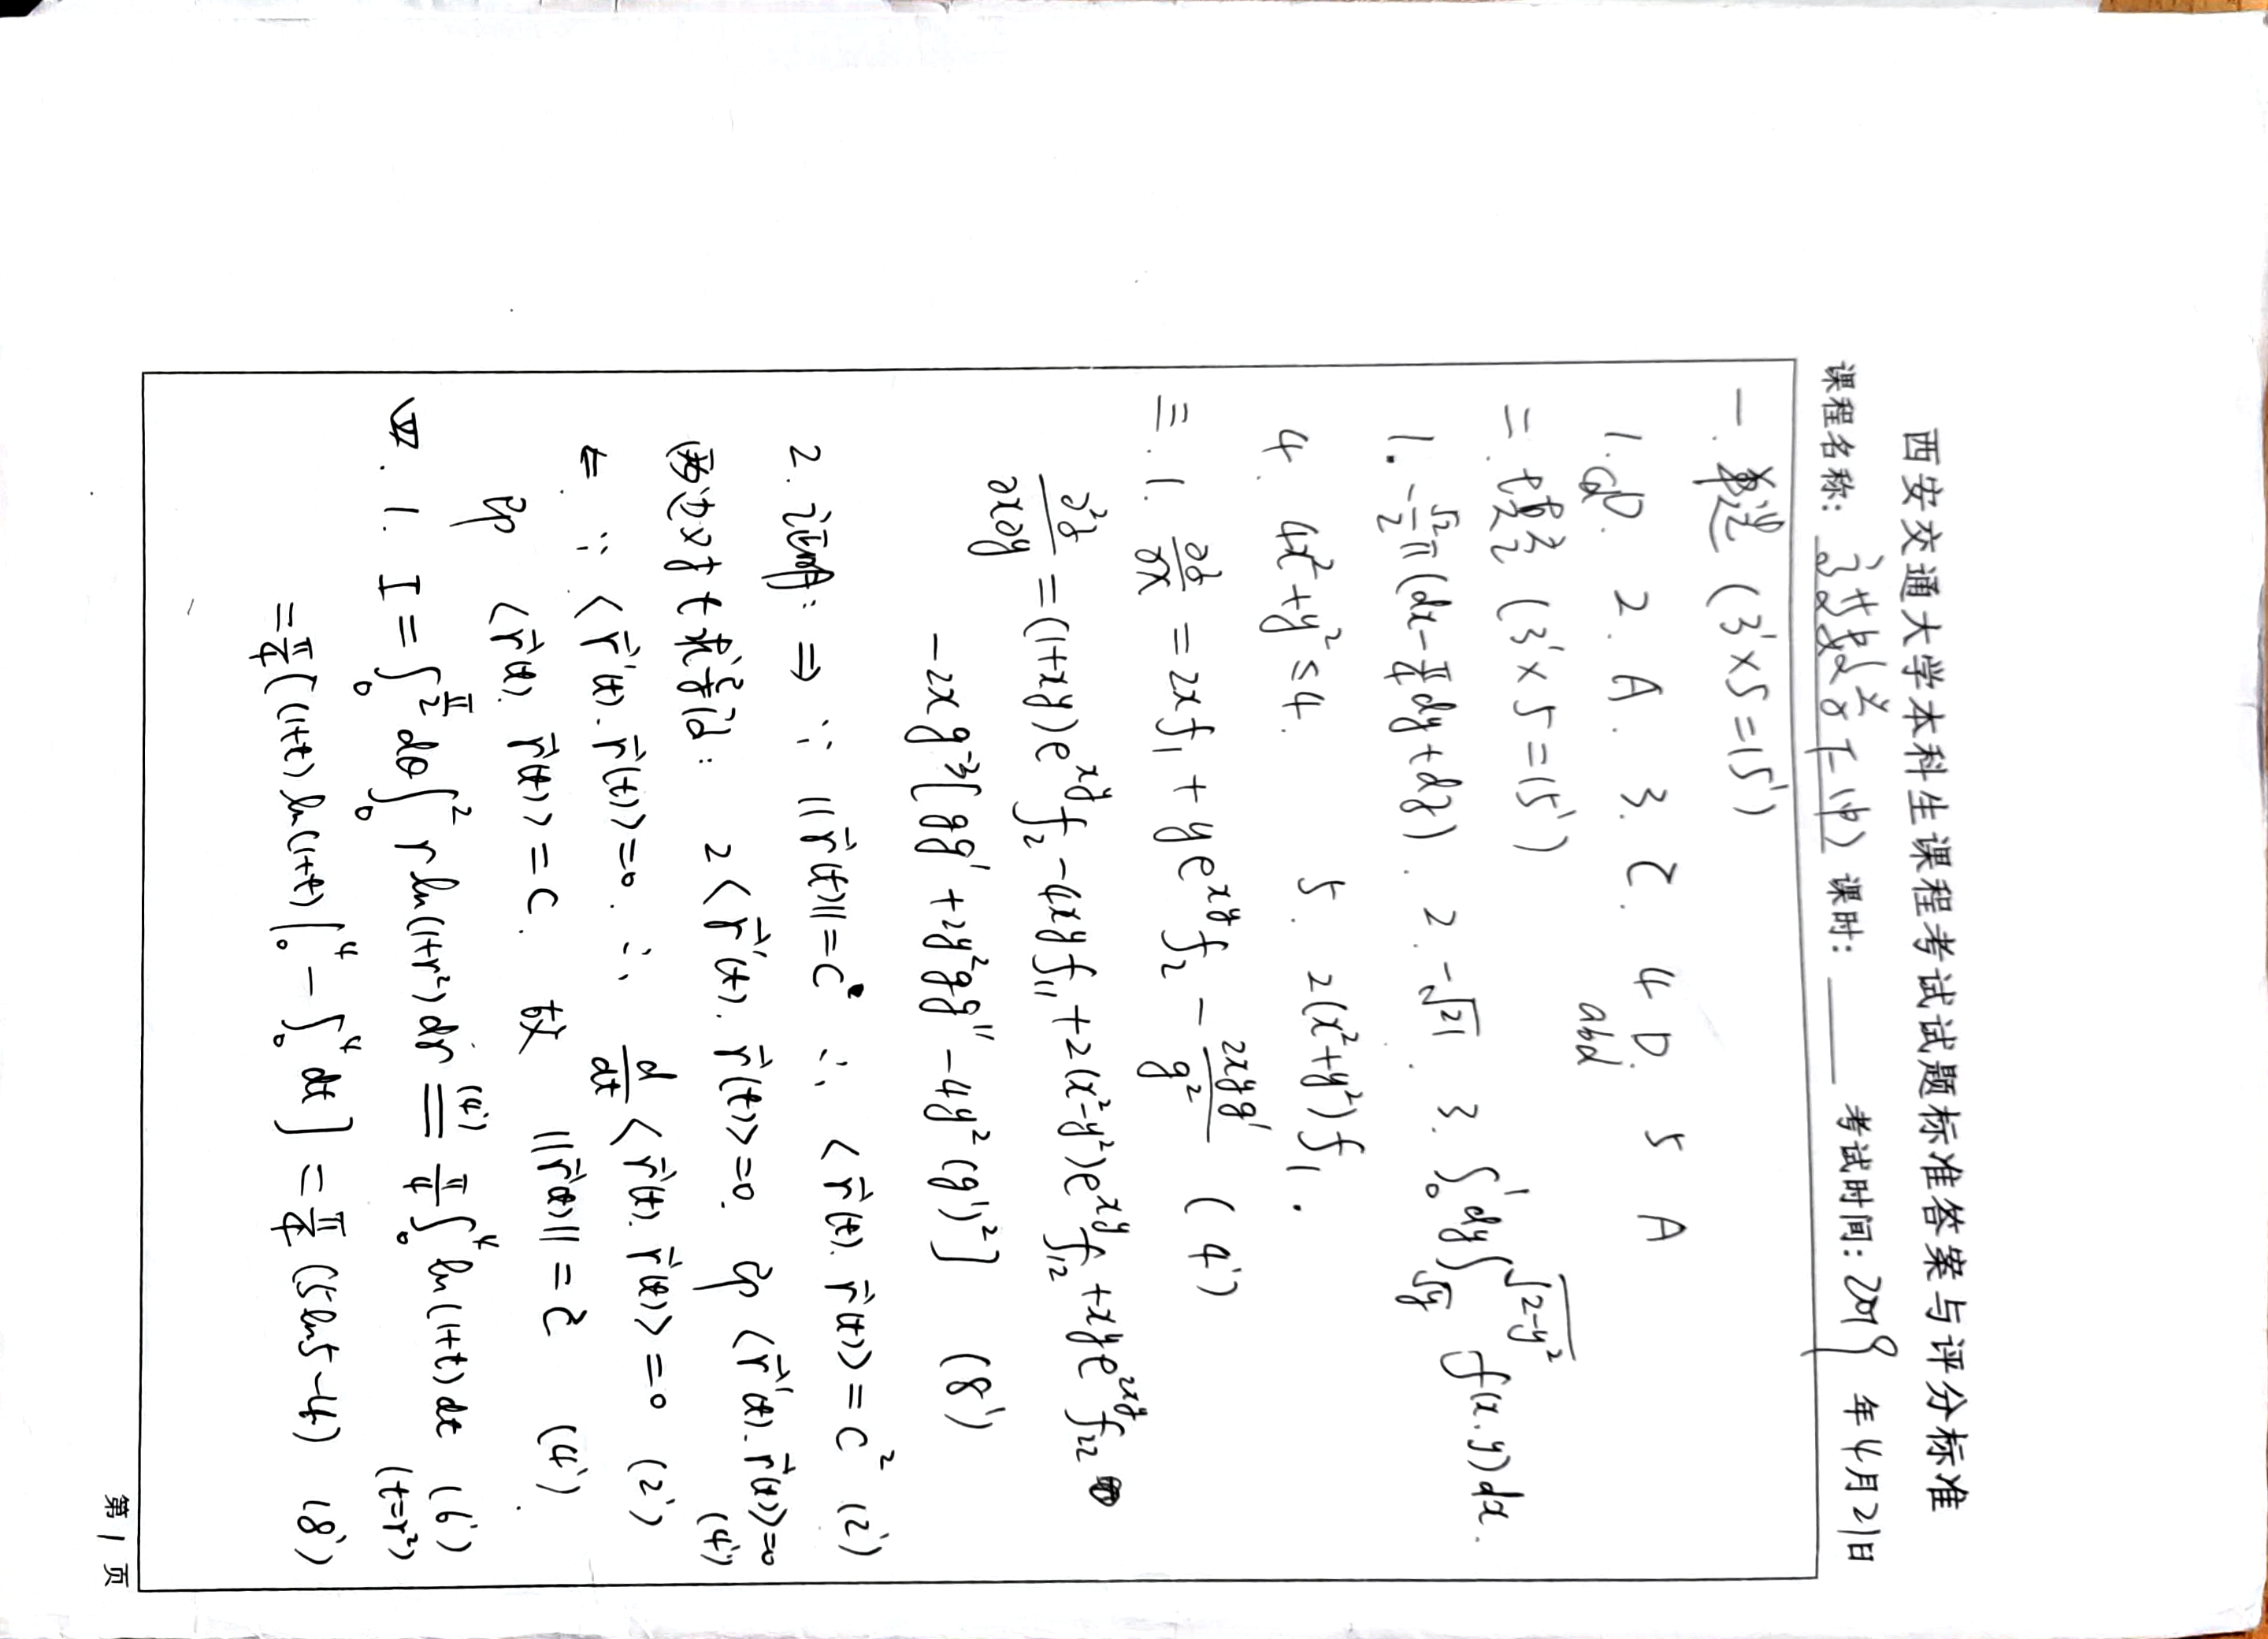 西安交通大学本科生课程考试试题标准答案与评分标准
课程名称：高等数学下(中) 课时：______ 考试时间：2019年4月21日
一. 单选 (3'×5=15')
1. D. 2. A. 3. C. 4 D. 5 A
abd
二. 填空 (3'×5=15')
1. -√2/2 π(dx-π/4 dy+dz). 2. -√21. 3. ∫₀¹dy∫_{√y}^{√(2-y²)} f(x.y)dx.
4. 4x²+y²≤4. 5. 2(x²+y²)f₁.
三. 1. ∂z/∂x = 2xf₁ + ye^{xy}f₂ - 2xyg'/g² (4')
∂²z/∂x∂y = (1+xy)e^{xy}f₂ - 4xyf₁₁ + 2(x²-y²)e^{xy}f₁₂ + xye^{2xy}f₂₂
-2xg⁻³[gg' + 2y²gg'' - 4y²(g')²] (8')
2. 证明: ⇒ ∵ ||r⃗(t)||=C ∴ <r⃗(t). r⃗(t)> = C² (2')
两边对t求导得: 2<r⃗'(t). r⃗(t)>=0. 即 <r⃗'(t). r⃗(t)>=0 (4')
⇐. ∵ <r⃗'(t). r⃗(t)>=0. ∴ d/dt <r⃗(t). r⃗(t)> =0 (2')
即 <r⃗(t). r⃗(t)> = C. 故 ||r⃗(t)|| = C̃ (4').
四. 1. I = ∫₀^{π/2} dθ∫₀² r ln(1+r²)dr (4') = π/4 ∫₀⁴ ln(1+t)dt (6')
(t=r²)
= π/4 [(1+t)ln(1+t)|₀⁴ - ∫₀⁴ dt] = π/4 (5ln5-4) (8')
第 1 页